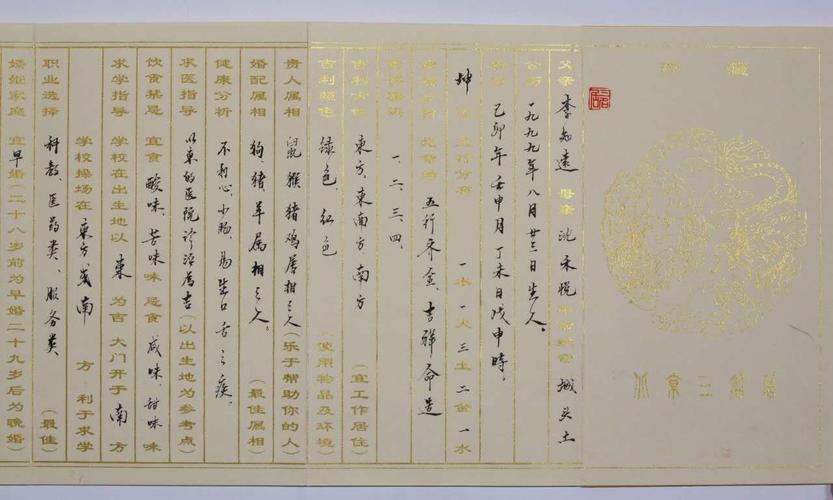 父亲 李知遠 母亲 沈禾悦 城头土
公历 一九九九年八月廿三日生人。
己卯年壬申月丁未日戊申時。
坤 五行分布 一木一火三土二金一水
五行齐全、吉祥命造
一、二、三、四、
吉利方位 東方、東南方、南方 (宜工作居住)
吉利颜色 绿色、红色 (使用物品及环境)
贵人属相 鼠猴猪鸡属相之人 (乐于帮助你的人)
婚配属相 狗、猪、羊属相之人。 (最佳属相)
健康分析 不利心、小肠、易生口舌之疾、
求医指导 以東的医院诊治为吉 (以出生地为参考点)
饮食禁忌 宜食 酸味、苦味 味 忌食 咸味、甜味 味
求学指导 学校在出生地以 東 为吉 大门开于 南 方
学校操场在 東方或南 方 利于求学
职业选择 科教、医药类、服务类 (最佳)
婚姻家庭 宜 早 婚(二十八岁前为早婚二十九岁后为晚婚